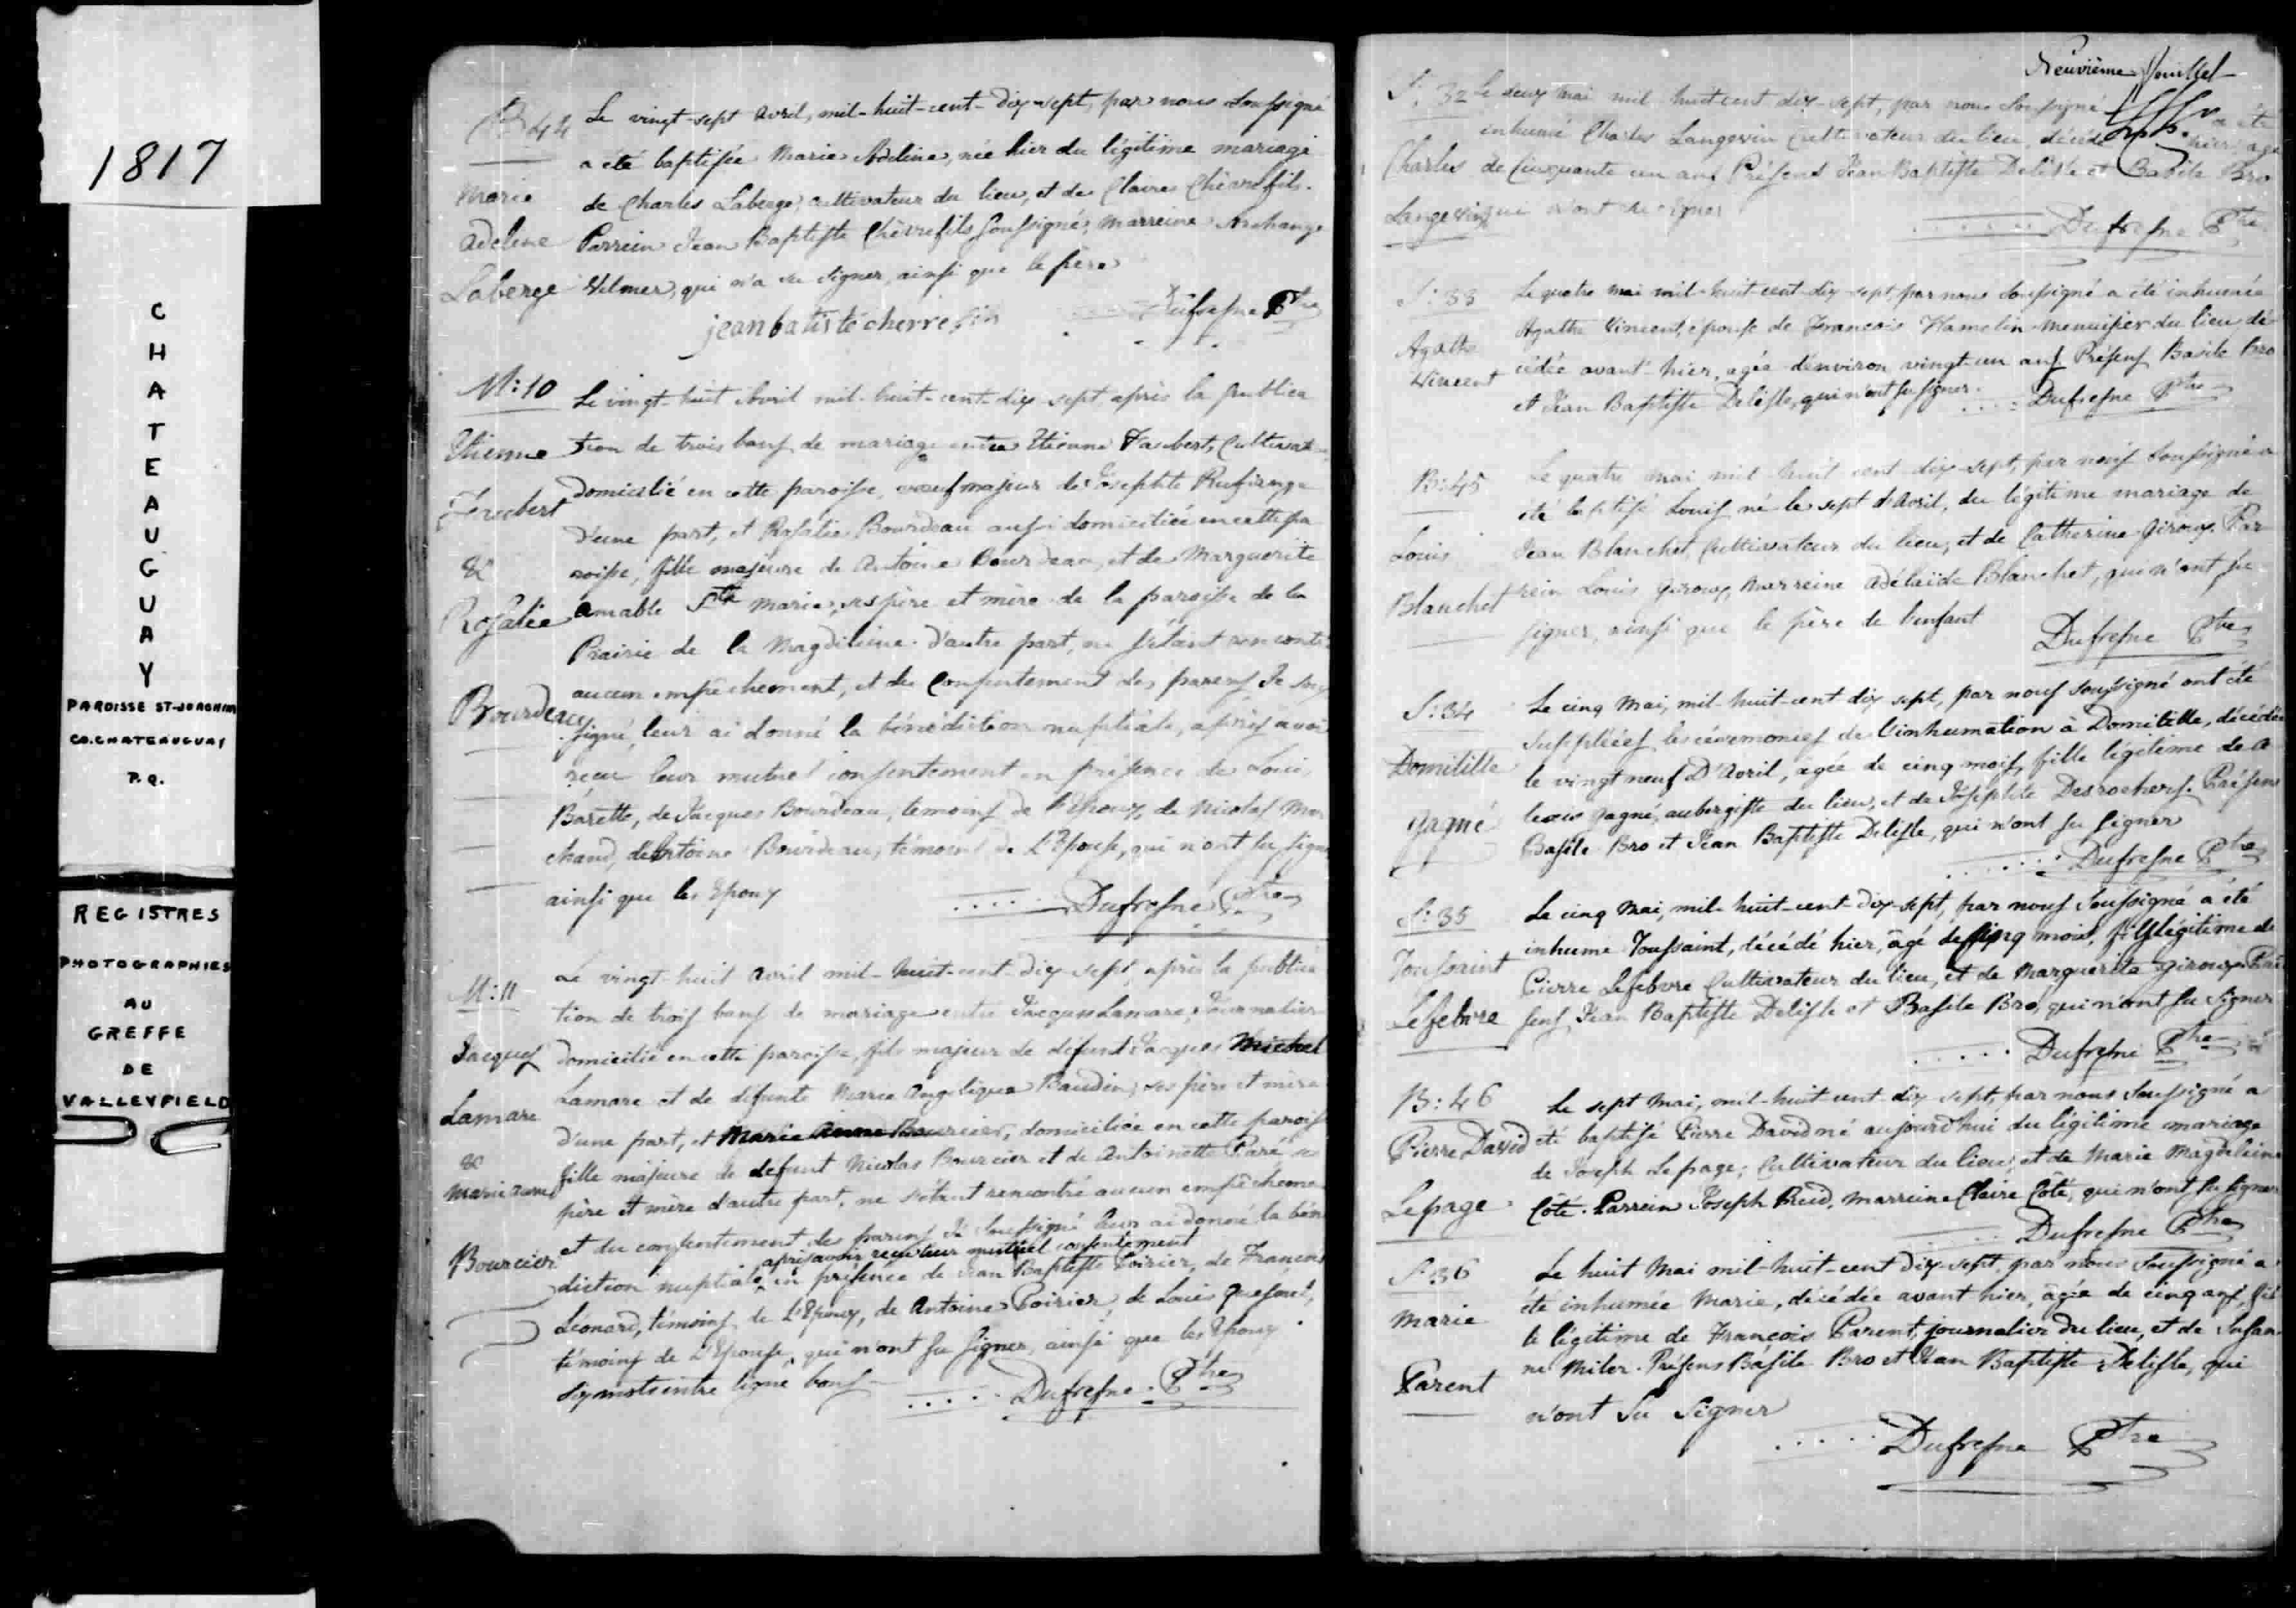 1817
CHATEAUGUAY
PAROISSE ST-JOACHIM
CO. CHATEAUGUAY
P.Q.
REGISTRES
PHOTOGRAPHIES
AU
GREFFE
DE
VALLEYFIELD
B 44
Marie
Adeline
Laberge
Le vingt-sept Avril, mil-huit-cent-dix-sept, par nous soussigné
a été baptisée Marie Adeline, née hier du légitime mariage
de Charles Laberge, cultivateur du lieu, et de Claire Chèvrefils.
Parrein Jean Baptiste Chèvrefils soussigné, marreine Archange
qui n'a su signer, ainsi que le père
jean batiste cherrefis
Dufresne Ptre
M: 10
Etienne
Faubert
&
Rosalie
Bourdeau
Le vingt-huit Avril mil-huit-cent-dix sept après la publica
tion de trois bans de mariage entre Etienne Faubert, Cultivate
domicilié en cette paroisse, veuf majeur de Josephte
d'une part, et Rosalie Bourdeau aussi domiciliée en cette pa
roisse, fille majeure de Antoine Bourdeau, et de Marguerite
amable Ste Marie, ses père et mère de la paroisse de la
Prairie de la Magdeleine d'autre part, ne s'étant rencontré
aucun empêchement, et du consentement des parens Je sous
signé, leur ai donné la bénédiction nuptiale, après avoir
reçu leur mutuel consentement en présence de Louis
Barette, de Jacques Bourdeau, témoins de l'Epoux, de Nicolas Mar
chand, de Antoine Bourdeau, témoins de L'Epouse, qui n'ont su signe
ainsi que les Epoux
Dufresne Ptre
M: 11
Jacques
Lamare
&
Marie anne
Bourcier
Le vingt-huit avril mil-huit-cent-dix-sept, après la publica
tion de trois bans de mariage entre Jacques Lamare, Journalier
domicilié en cette paroisse, fils majeur de défunt Jacques Michel
Lamare et de défunte Marie Angelique Baudin, ses père et mère
d'une part, et Marie Anne Bourcier, domiciliée en cette parois
fille majeure de défunt Nicolas Bourcier et de Antoinette Paré ses
père et mère d'autre part, ne s'étant rencontré aucun empêcheme
et du consentement des parens Je soussigné leur ai donné la béné
après avoir reçu leur mutuel consentement
diction nuptiale, en présence de Jean Baptiste Poirier, de Francois
Léonard, témoins de L'Epoux, de Antoine Poirier, de Louis Quesnel,
témoins de L'Epouse, qui n'ont su signer, ainsi que les Epoux
Six mots entre ligne bons
Dufresne Ptre
Neuvième feuillet
S. 32
Charles
Langevin
Le deux mai mil huit cent dix-sept, par nous soussigné a été
inhumé Charles Langevin Cultivateur du lieu, décédé hier agé
de Cinquante un ans Présens Jean Baptiste Delisle et Basile Bro
qui n'ont su signer
Dufresne Ptre
S: 33
Agathe
Vincent
Le quatre mai mil-huit-cent-dix-sept, par nous soussigné a été inhumée
Agathe Vincent, épouse de Francois Hamelin menuisier du lieu, dé
cédée avant hier, agée d'environ vingt-un ans Présens Basile Bro
et Jean Baptiste Delisle, qui n'ont su signer.
Dufresne Ptre
B: 45
Louis
Blanchet
Le quatre mai mil huit cent dix-sept, par nous soussigné a
été baptisé Louis né le sept d'avril, du légitime mariage de
Jean Blanchet, Cultivateur du lieu, et de Catherine Giroux. Par
rein Louis Giroux, marreine Adélaïde Blanchet, qui n'ont su
signer, ainsi que le père de l'enfant
Dufresne Ptre
S: 34
Domitille
Gagné
Le cinq Mai, mil-huit-cent dix sept, par nous soussigné ont été
suppléées les cérémonies de l'inhumation à Domitille, décédée
le vingt neuf D'Avril, agée de cinq mois, fille légitime de A
lexis Gagné, aubergiste du lieu, et de Josephte Desrochers. Présens
Basile Bro et Jean Baptiste Delisle, qui n'ont su signer
Dufresne Ptre
S: 35
Toussaint
Lefebvre
Le cinq Mai, mil-huit-cent-dix-sept, par nous soussigné a été
inhumé Toussaint, décédé hier, âgé de cinq mois, fils légitime de
Pierre Lefebvre Cultivateur du lieu, et de Marguerite Giroux. Pré
sens Jean Baptiste Delisle et Basile Bro, qui n'ont su signer
Dufresne Ptre
B: 46
Pierre David
Lepage
Le sept Mai, mil-huit-cent-dix-sept, par nous soussigné a
été baptisé Pierre David né aujourdhui du légitime mariage
de Joseph Lepage, Cultivateur du lieu, et de Marie Magdeleine
Côté. Parrein Joseph Marreine Claire Côté, qui n'ont su signer
Dufresne Ptre
S: 36
Marie
Parent
Le huit Mai mil-huit-cent dix-sept, par nous soussigné a
été inhumée Marie, décédée avant hier, âgée de cinq ans, fil
le légitime de François Parent, journalier du lieu, et de Susan
ne Miler. Présens Basile Bro et Jean Baptiste Delisle, qui
n'ont su signer
Dufresne Ptre